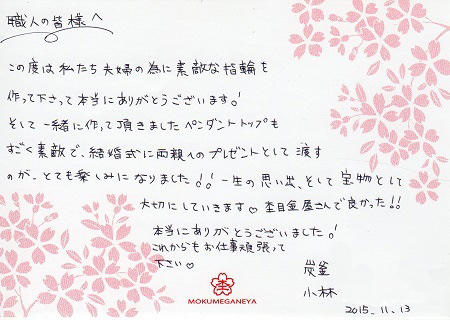 職人の皆様へ
この度は私たち夫婦の為に素敵な指輪を
作って下さって本当にありがとうございます!
そして一緒に作って頂きましたペンダントトップも
すごく素敵で、結婚式に両親へのプレゼントとして渡す
のが、とても楽しみになりました!!一生の思い出、そして宝物として
大切にしていきます♡ 杢目金屋さんで良かった!!
本当にありがとうございました!
これからもお仕事頑張って
下さい♡
小林
2015.11.13
MOKUMEGANEYA